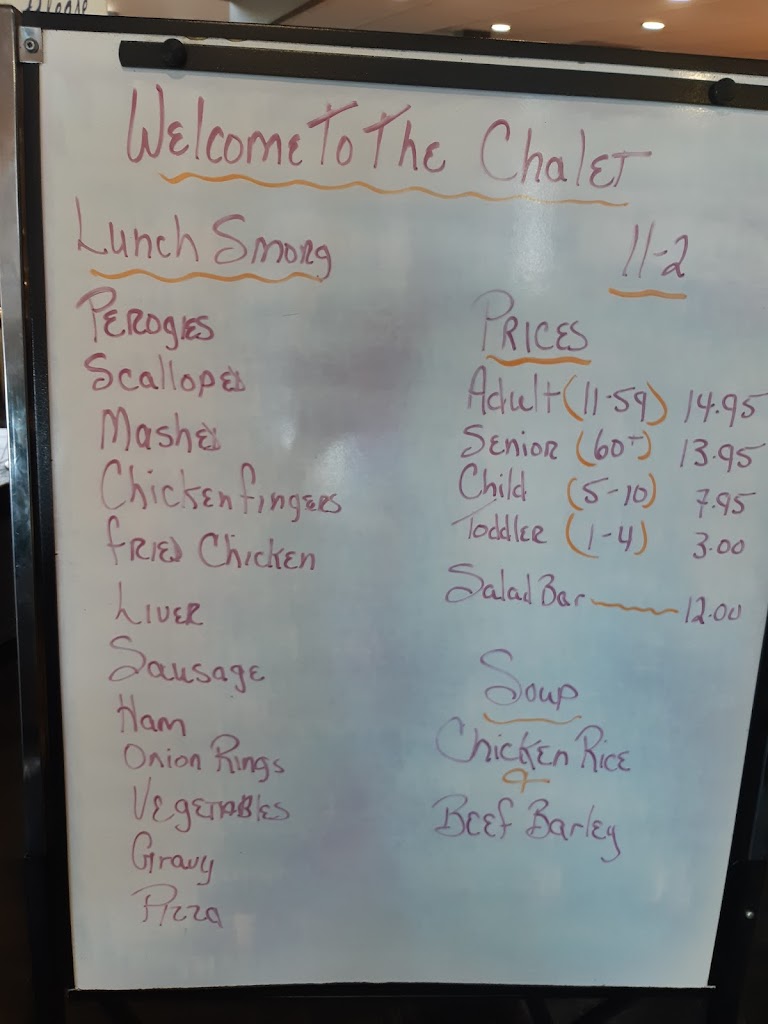 Please
Welcome To The Chalet
Lunch Smorg
11-2
Perogies
Scalloped
Mashed
Chicken fingers
fried Chicken
Liver
Sausage
Ham
Onion Rings
Vegetables
Gravy
Pizza
Prices
Adult (11-59) 14.95
Senior (60+) 13.95
Child (5-10) 7.95
Toddler (1-4) 3.00
Salad Bar 12.00
Soup
Chicken Rice
&
Beef Barley